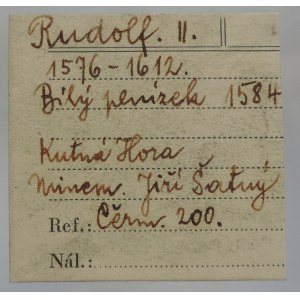 Rudolf. II.
1576-1612.
Bílý peníZek 1584
Kutná Hora
Mincm. Jiří Šatný
Ref.: Čerm. 200.
Nál.: